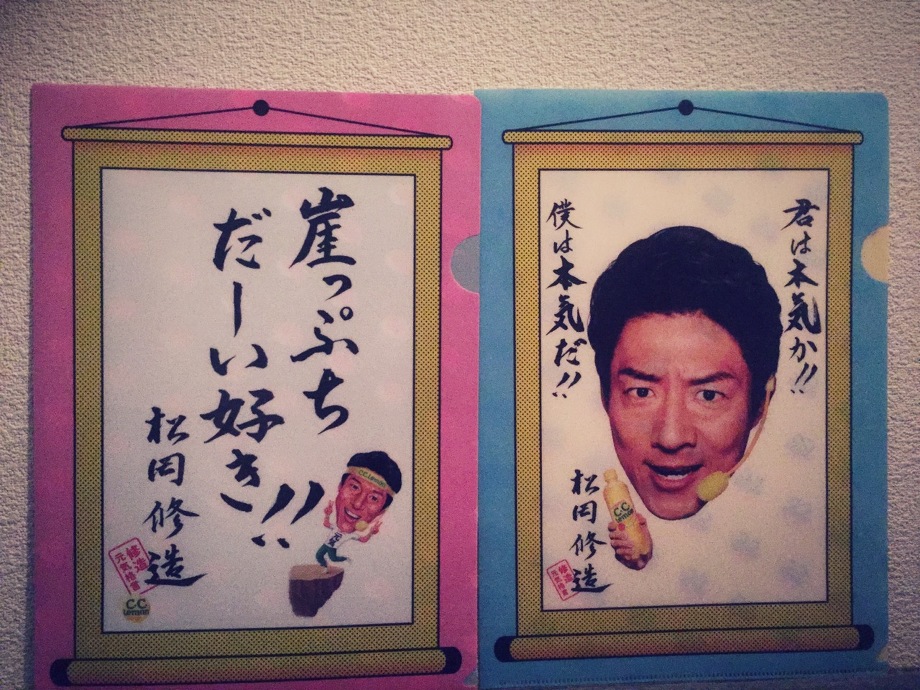 崖っぷち
だーい好き!!
松岡修造
修造
元気格言
C.C.Lemon
C.C.
Lemon
君は本気か!!
僕は本気だ!!
松岡修造
修造
元気格言
C.C.
Lemon